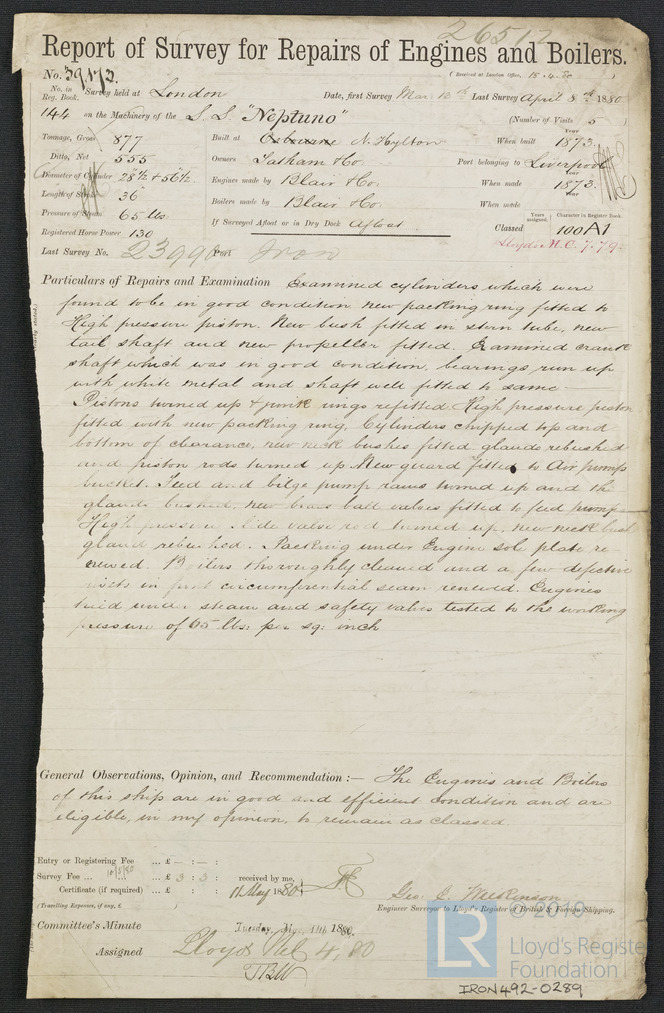 26512
Report of Survey for Repairs of Engines and Boilers.
No. 39173. (Received at London Office, 15.4.80 )
No. in Reg. Book. Survey held at London Date, first Survey Mar. 12th Last Survey April 8th 1880
144 on the Machinery of the S.S. "Neptuno" (Number of Visits 5 )
Tonnage, Gross 877 Built at Osbourne N. Hylton When built Year 1873
Ditto, Net 555 Owners Tatham & Co. Port belonging to Liverpool
Diameter of Cylinder 28½ + 56½ Engines made by Blair & Co. When made Year 1873.
Length of Stroke 36 Boilers made by Blair & Co. When made Year
Pressure of Steam 65 lbs. If Surveyed Afloat or in Dry Dock Afloat Classed Years assigned. Character in Register Book. 100A1
Registered Horse Power 130 Lloyds M.C. 7.79.
Last Survey No. 23990 Port Iron
Particulars of Repairs and Examination Examined cylinders which were
found to be in good condition new packing ring fitted to
High pressure piston. New bush fitted in stern tube, new
tail shaft and new propeller fitted. Examined crank
shaft which was in good condition, bearings run up
with white metal and shaft well fitted to same —
Pistons turned up & junk rings refitted High pressure piston
fitted with new packing ring, Cylinders chipped top and
bottom of clearance, new neck bushes fitted glands rebushed
and piston rods turned up. New guard fitted to Air pump
bucket. Feed and bilge pump rams turned up and the
glands bushed, new brass ball valves fitted to feed pump
High pressure slide valve rod turned up, new neck bush
gland rebushed. Packing under Engine sole plate re-
newed. Boilers thoroughly cleaned and a few defective
rivets in circumferential seam renewed. Engines
tried under steam and safety valves tested to the working
pressure of 65 lbs: per sq: inch
General Observations, Opinion, and Recommendation :— The Engines and Boilers
of this ship are in good and efficient condition and are
eligible, in my opinion, to remain as classed.
Entry or Registering Fee ... £ — : — :
Survey Fee ... 10/5/80 ... £ 3 : 3 : received by me,
Certificate (if required) ... £ : : 11 May 1880
(Travelling Expenses, if any, £ )
Geo. C. Wilkinson
Engineer Surveyor to Lloyd's Register of British & Foreign Shipping.
Committee's Minute Tuesday, May 11th 1880.
Assigned Lloyds M.C. 4.80
© 2019
LR
Lloyd's Registe
Foundation
IRON492-0289